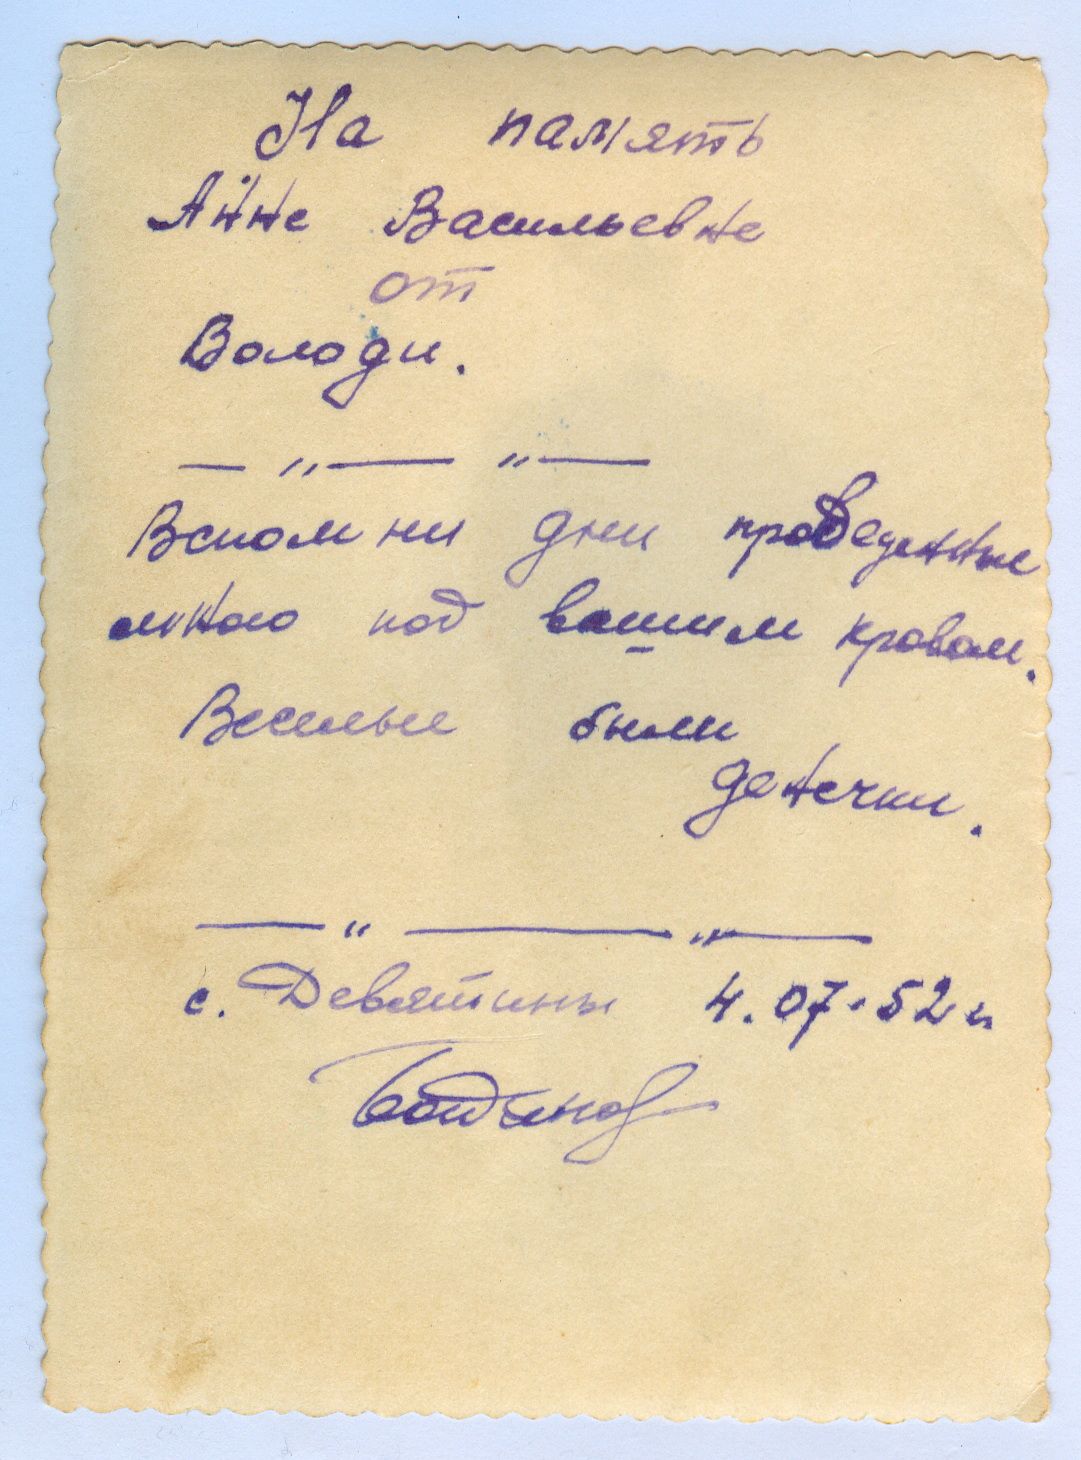 На память
Анне Васильевне
от
Володи.
— „ — „ —
Вспомни дни проведенные
мною под вашим кровом.
Веселые были
денечки.
— „ — „ —
с. Девятины 4.07.52 г.